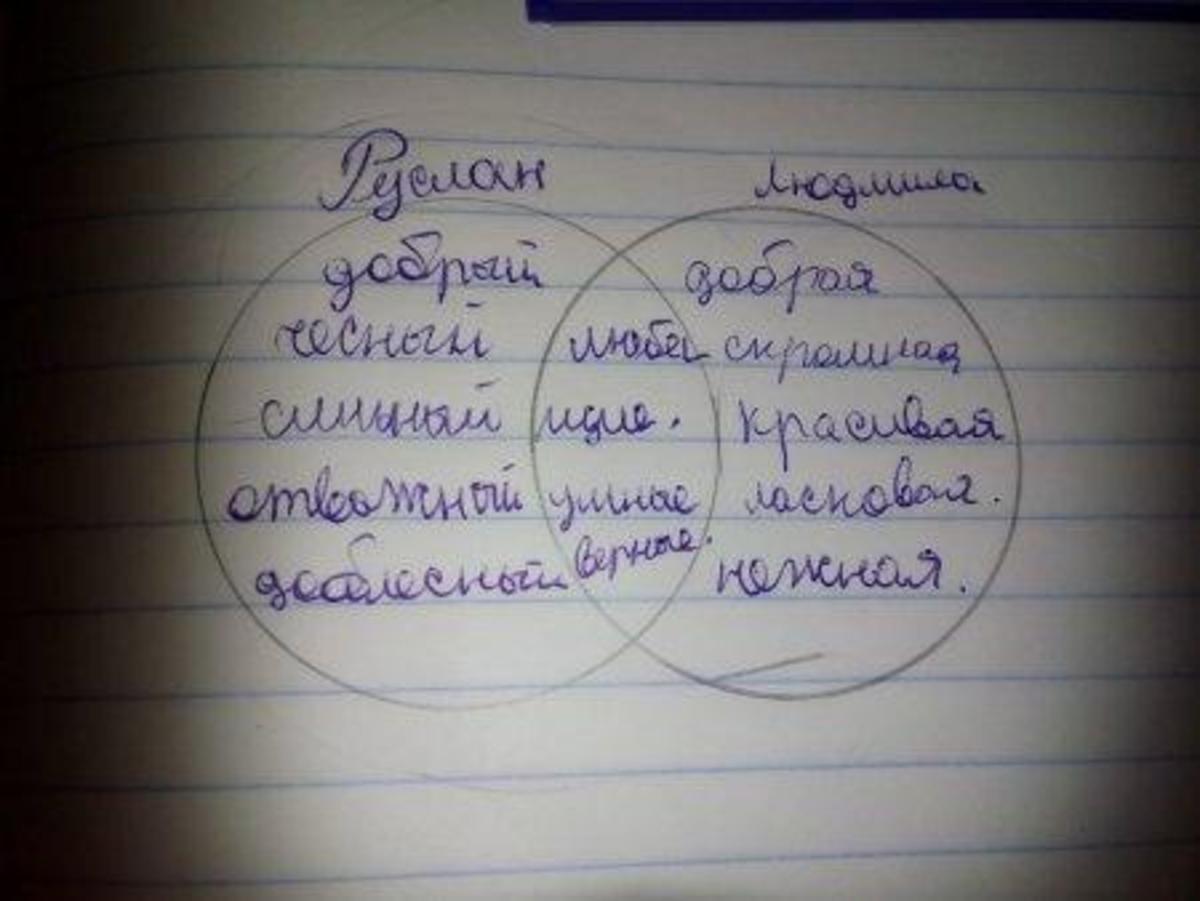 Руслан
Людмила
добрый
добрая
чесный
любея
скромная
сильный
щие.
красивая
отважный
умные
ласковая.
доблесный
верные.
нежная.